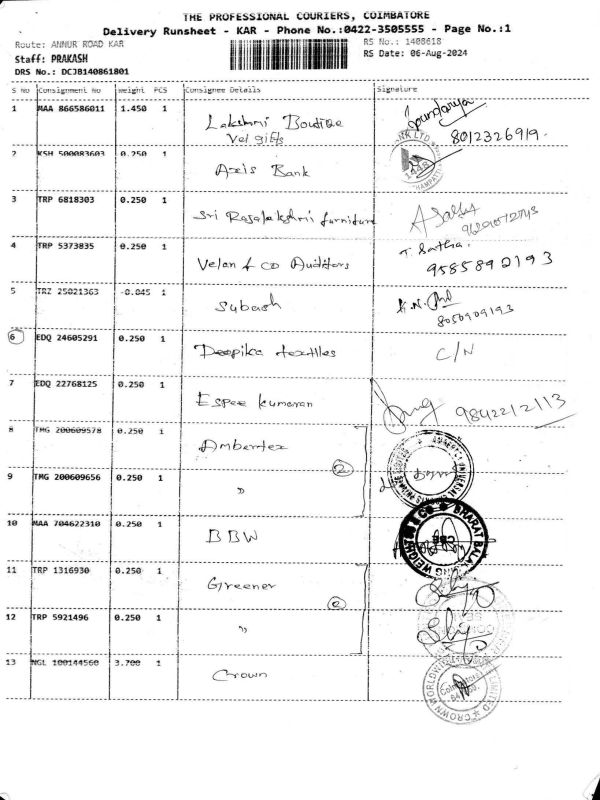 THE PROFESSIONAL COURIERS, COIMBATORE
Delivery Runsheet - KAR - Phone No.:0422-3505555 - Page No.:1
Route: ANNUR ROAD KAR
RS No.: 1408618
Staff: PRAKASH
RS Date: 06-Aug-2024
DRS No.: DCJ8140861801
S No Consignment No Weight PCS Consignee Details Signature
1 MAA 866586011 1.450 1 Lakshmi Boutiqe
Vel gifts 8012326919.
2 KSH 500083603 0.250 1 Axis Bank
3 TRP 6818303 0.250 1 Sri Rajalakshmi furniture
4 TRP 5373835 0.250 1 Velan & CO Auditors T. Satha.
9585892193
5 TRZ 25021363 -0.045 1 Subash
8050909193
6 EDQ 24605291 0.250 1 Deepika textiles C/N
7 EDQ 22768125 0.250 1 Espee kumaran 9842212113
8 TMG 200609578 0.250 1 Ambertex
2
9 TMG 200609656 0.250 1 "
10 MAA 704622310 0.250 1 BBW
11 TRP 1316930 0.250 1 Greener
12 TRP 5921496 0.250 1 "
13 NGL 100144560 3.700 1 Crown